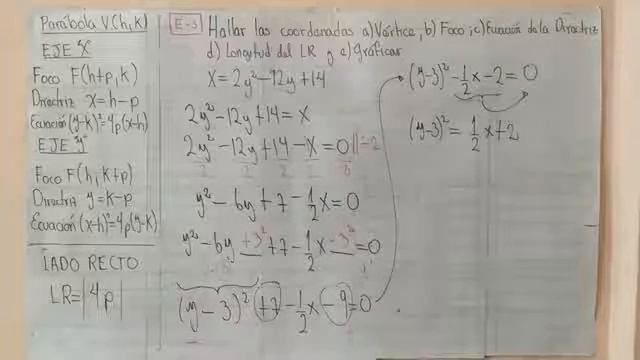 Parábola V(h,k)
EJE "X"
Foco F(h+p,k)
Directriz x=h-p
Ecuación (y-k)²=4p(x-h)
EJE "Y"
Foco F(h,k+p)
Directriz y=k-p
Ecuación (x-h)²=4p(y-k)
LADO RECTO
LR=|4p|
E-3 Hallar las coordenadas a) Vértice, b) Foco, c) Ecuación de la Directriz
d) Longitud del LR y e) Gráficar
x=2y²-12y+14
2y²-12y+14=x
2y²-12y+14-x=0 ||÷2
y²-6y+7-1/2x=0
y²-6y+3²+7-1/2x-3²=0
(y-3)²+7-1/2x-9=0
(y-3)²-1/2x-2=0
(y-3)²=1/2x+2